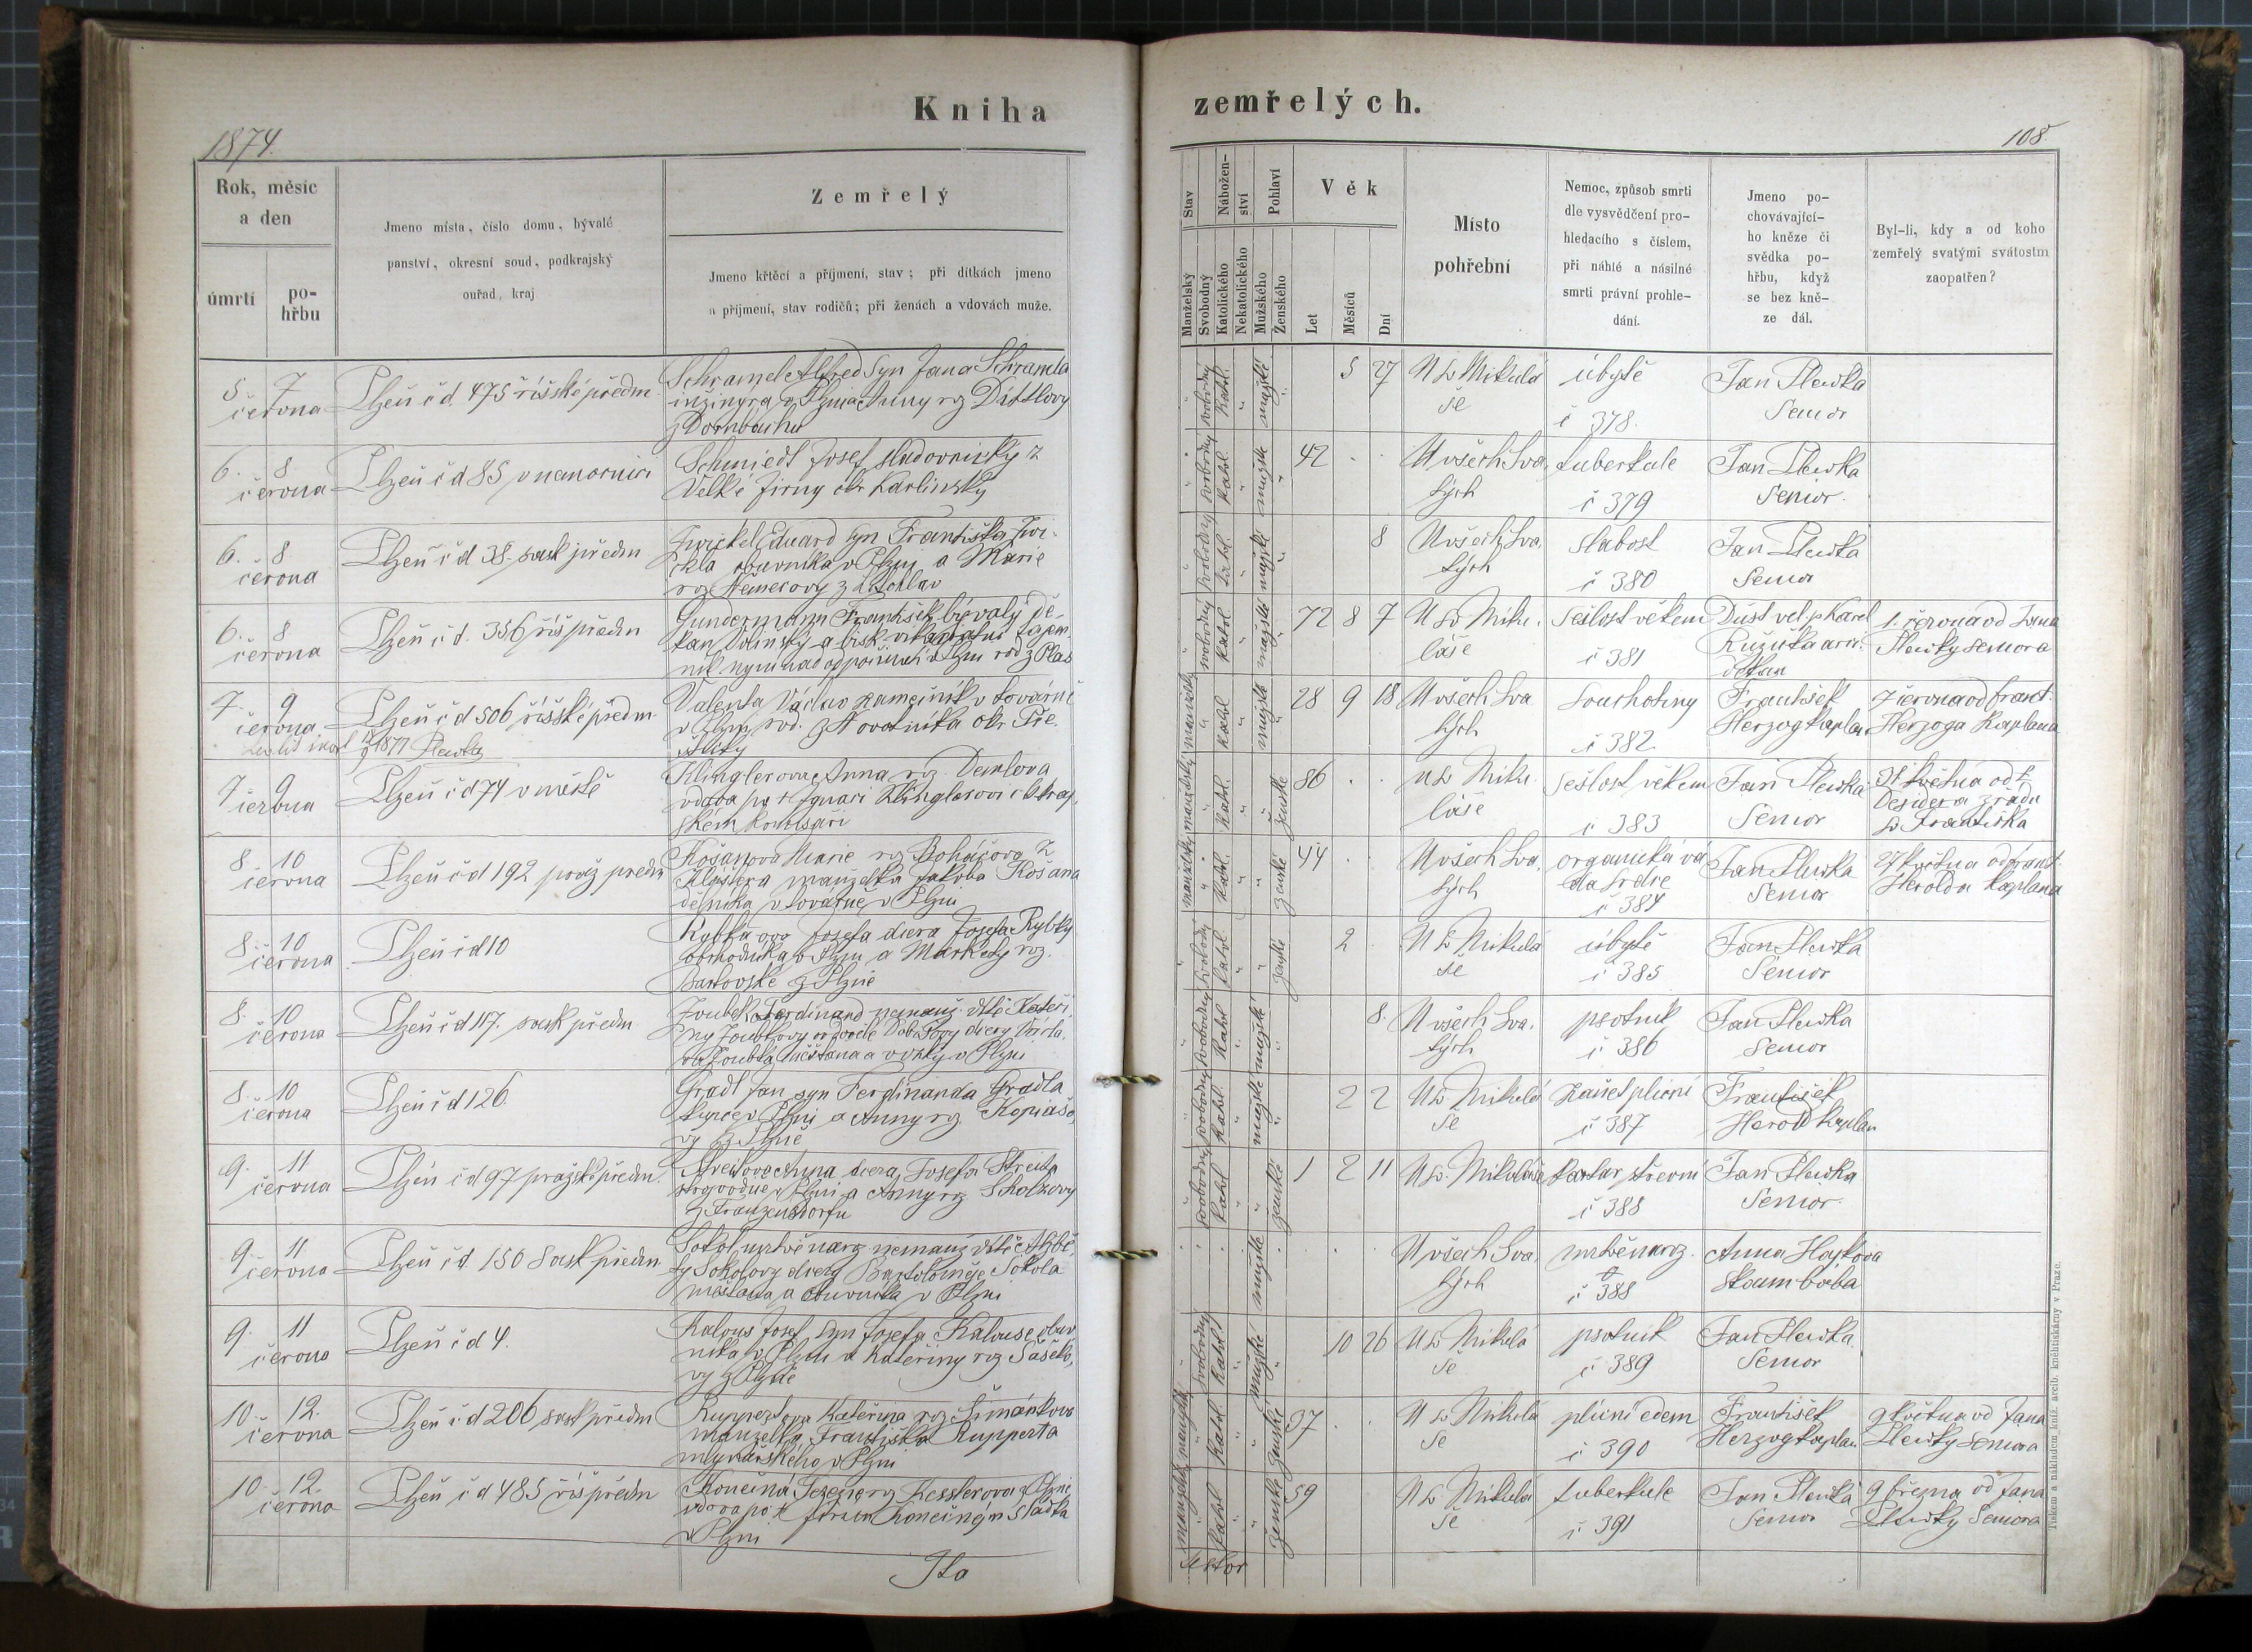 Kniha zemřelých.
1874.
108
Rok, měsíc
a den
úmrtí
po-
hřbu
Jmeno místa, číslo domu, bývalé
panství, okresní soud, podkrajský
ouřad, kraj
Zemřelý
Jmeno křtěcí a příjmení, stav; při dítkách jmeno
a příjmení, stav rodičů; při ženách a vdovách muže.
Stav
Manželský
Svobodný
Nábožen-
ství
Katolického
Nekatolického
Pohlaví
Mužského
Ženského
Věk
Let
Měsíců
Dní
Místo
pohřební
Nemoc, způsob smrti
dle vysvědčení pro-
hledacího s číslem,
při náhlé a násilné
smrti právní prohle-
dání.
Jmeno po-
chovávající-
ho kněze či
svědka po-
hřbu, když
se bez kně-
ze dál.
Byl-li, kdy a od koho
zemřelý svatými svátostm
zaopatřen?
5. 7
června
Plzeň č d. 475 říšské předm
Schramek Alfred syn Jana Schramla
inzinyra v Plzni a Anny rz Dittlovy
z Dornbachu
svobodný katol. mužské
5 27
U Sv Mikulá
še
úbytě
č 378.
Jan Slewka
Senior
6. 8
června
Plzeň č d 85 v nemocnici
Schmiedt Josef sladovnický z
Velké Jirny okr Karlinský
svobodný katol. mužské
42 . .
U všech Sva
tých
tuberkule
č 379
Jan Slewka
Senior.
6. 8
června
Plzeň č d 38. sask předm
Zwickel Eduard syn Františka Zwi-
ckla obuvníka v Plzni a Marie
rz Němecovy z
svobodný katol. mužské
8
U všech Sva.
tých
slabost
č 380
Jan Slewka
Senior
6. 8
června
Plzeň č d. 356 říš předm
Gundermann František bývalý dě-
kan Volinský a bisk. vikariatní tajem
ník nyní nad odpočinutí v Plzni rod z Plas
svobodný katol mužské
72 8 7
U Sv Miku.
láše
Sešlost věkem
č 381
Důst vel p Karel
Ružička arci.
děkan
1. června od Jana
Slewky seniora
7. 9
června
Plzeň č d 506 říšské předm.
1877 Slewka
Valenta Václav zamečník v továrně
v Plzni rod. z Novotníka okr Pře.
štický
manželský katol mužské
28 9 18
U všech Sva
tých
Souchotiny
č 382
František
Herzog kaplan
7 června od frant.
Herzoga Kaplana
7 9
června
Plzeň č d 74 v městě
Klinglerova Anna rz. Demlova
vdova po † Ignaci Klinglerovi c k kraj.
ském komisari
manželský katol. ženské
86 . .
u Sv Miku.
láše
Sešlost věkem
č 383
Jan Slewka
Senior
31 května od P.
Desidera z řádu
Sv Františka
8. 10
června
Plzeň č d 192 praž předm
Košanova Marie rz Boháčova z
Kláštera manželka Jakoba Košana
dělníka v továrně v Plzni
manželský katol. ženské
44 . .
U všech Sva.
tých
organická vá
da srdce
č 384
Jan Slewka
Senior
27 května od frant
Herolda kaplana
8. 10
června
Plzeň č d 10
Rybka ova Josefa dcera Josefa Rybky
obchodníka v Plzni a Markety rz.
z Plzně
svobodný katol. ženské
2 .
U Sv Mikulá
še
úbytě
č 385
Jan Slewka
Senior
8. 10
června
Plzeň č d 117. sask předm
Zoubek Ferdinand nemanž. dítě Kateři
ny Zoubkovy ov
Zoubka měšťana a v Plzni
svobodný katol mužské
8.
U všech Sva.
tých
psotník
č 386
Jan Slewka
Senior
8. 10
června
Plzeň č d 126.
Gradl Jan syn Ferdinanda Gradla
kupce v Plzni a Anny rz. Kopiašo,
vy z Plzně
svobodný katol. mužské
2 2
U Sv Mikulá
še
Zanět plicní
č 387
František
Herold kaplan
9. 11
června
Plzeň č d 97 pražské předm.
Streitova Anna dcera Josefa Streita
strojvůdce v Plzni a Anny rz Scholzovy
z Franzensdorfu
svobodný katol ženské
1 2 11
U Sv. Mikuláše
katar střevní
č 388
Jan Slewka
Senior
9. 11
června
Plzeň č d 150 Sask předm
Sokol mrtvě narz nemanž dítě Alžbě
ty Sokolovy dcery Bartoloměje Sokola
měšťana a obuvníka v Plzni
mužské
U všech Sva.
tých
mrtvě narz.
č 388
Anna Hajkova
zkoum baba
9. 11
června
Plzeň č d 4.
Kalous Josef syn Josefa Kalouse obuv
níka v Plzni a Kateřiny rz Sašeko,
vy z Plzně
svobodný katol mužské
10 26
U Sv Mikulá
še
psotník
č 389
Jan Slewka.
Senior
10. 12.
června
Plzeň č d 206 sask předm
Ruppertova Kateřina rz. Šimankova
manželka Františka Rupperta
mlynářského v Plzni
manželský katol. ženské
37 . .
U Sv Mikulá
še
plicní edem
č 390
František
Herzog kaplan
9 května od Jana
Slewky Seniora
10. 12.
června
Plzeň č d 485 říš předm
Konečná Terezie rz Kesslerova z Plzně
vdova po † Konečným sladka
v Plzni
manželský katol ženské
59
U Sv Mikulá
še
tuberkule
č 391
Jan Slewka
Senior
9 března od Jana
Slewky Seniora
Tiskem a nákladem kníž. arcib. kněhtiskárny v Praze.